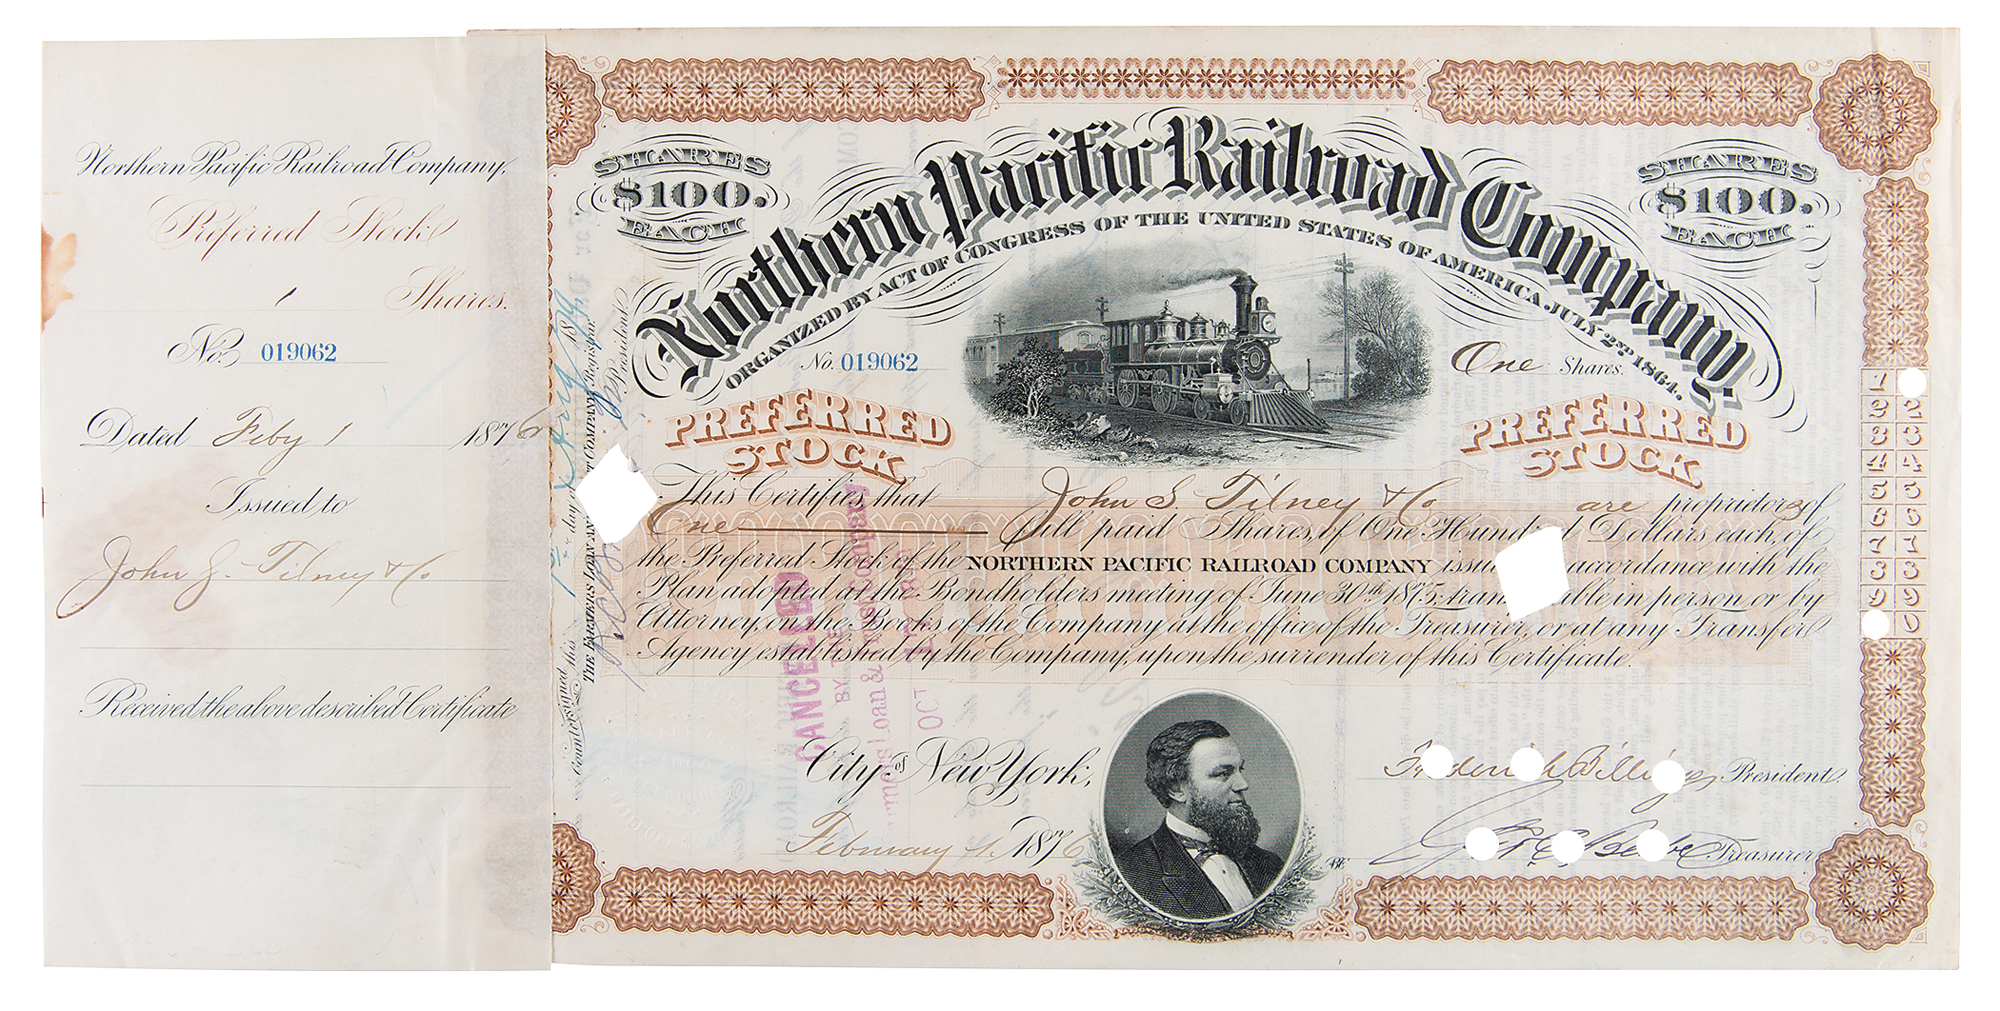 Northern Pacific Railroad Company.
Preferred Stock
1 Shares.
No. 019062
Dated Feby 1 1876
Issued to
John S. Tilney & Co
Received the above described Certificate
Countersigned this 1st day of Aug 1879
THE FARMERS LOAN AND COMPANY, Registrar
President.
SHARES
$100.
EACH
Northern Pacific Railroad Company.
SHARES
$100.
EACH
ORGANIZED BY ACT OF CONGRESS OF THE UNITED STATES OF AMERICA, JULY 2ND 1864.
No. 019062
One Shares.
PREFERRED
STOCK
PREFERRED
STOCK
This Certifies, that John S. Tilney & Co are proprietors of
One full paid Shares, of One Hundred Dollars each, of
the Preferred Stock of the NORTHERN PACIFIC RAILROAD COMPANY issu accordance with the
Plan adopted at the Bondholders meeting of June 30th 1875, tran able in person or by
Attorney, on the Books of the Company at the office of the Treasurer, or at any Transfer
Agency established by the Company, upon the surrender of this Certificate.
CANCELLED
BY THE
Loan &
OCT
City of New York,
February 1. 1876
Frederick Billings President.
Treasurer
1
2 2
3 3
4 4
5 5
6 6
7 7
8 8
9 9
0